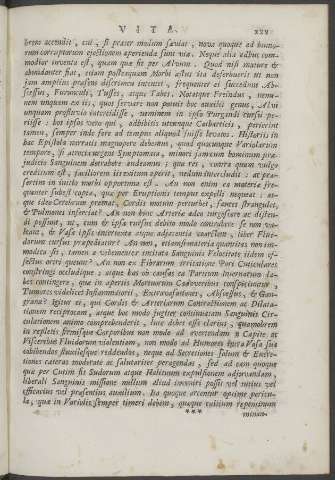 VITA. xxv
brem accendit, cui, si præter modum sæviat, nova quoque ad humo-
rum corruptorum ejectionem aperienda sunt via. Neque alia ductus com-
modior inventa est, quam quæ fit per Alvum. Quod nisi mature &
abundanter fiat, etiam postquam Morbi æstus ita deferbuerit ut non
jam amplius præsens discrimen intentet, frequenter ei succedunt Ab-
scessus, Furunculi, Tusses, atque Tabes. Narratque Freindus, nemi-
nem unquam ex iis, quos servare non potuit hoc auxilii genus, Alvi
unquam profluviis interiisse, neminem in ipsa Purgandi cursu pe-
riisse: hos ipsos vero qui, adhibitis utcunque Catharticis, perierint
tamen, semper inde fere ad tempus aliquod fuisse levatos. Historiis in
hac Epistola narratis magnopere debemus, quod quacunque Variolarum
tempore, si atrociora urgent Symptomata, mirari jamcum hominum præ-
judiciis Sanguinem detrahere audeamus; qua res, contra quam vulgo
creditum est, faciliorem iis exitum aperit, nedum intercludit: at præ-
sertim in initio morbi opportuna est. An non enim ea materia fre-
quenter subest copia, quæ per Eruptionis tempus expelli nequeat; at-
que ideo Cerebrum premat, Cordis motum perturbet, fauces strangulet,
& Pulmones infarciat? An non hinc Arteriæ adeo turgescere ac disten-
di possunt, ut, cum & ipsa rursus debito modo contrahere se non va-
leant, & Vasa ipsis intertexta atque adjacentia coarctent, liber Flui-
dorum cursus præpediatur? An non, etiamsi materiæ quantitas non im-
modica sit, tamen a vehementer incitato Sanguinis Velocitate iidem ef-
fectus oriri queunt? An non ex Fibrarum irritatione Pori Cuticulares
constringi occluduntque: atque has ob causas ea Partium Internarum la-
bes contingere, quæ in apertis Mortuorum Cadaveribus conspiciuntur,
Tumores videlicet Inflammatorii, Extravasationes, Abscessus, & Gan-
græna? Igitur ei, qui Cordis & Arteriarum Contractionem ac Dilata-
tionem reciprocam, atque hoc modo jugiter continuatam Sanguinis Cir-
culationem animo comprehenderit, luce debet esse clarius, quamobrem
in repletis firmisque Corporibus non modo ad avertendam a Capite ac
Visceribus Fluidorum violentiam, non modo ad Humores intra Vasa sua
cohibendos faciliusque reddendos, neque ad Secretiones solum & Excre-
tiones cæteras moderate ac salutariter peragendas, sed ad eam quoque
quæ per Cutim fit Sudorum atque Halituum expulsionem adjuvandam,
liberali Sanguinis missione nullum Aliud inveniri possit vel tutius vel
efficacius vel præsentius auxilium. Ita quoque arcentur optime pericu-
la, quæ in Variolis semper timeri debent, quoque cultum repentinum
*** minan-